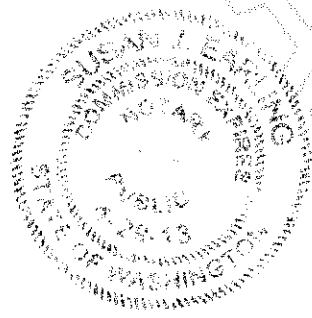 SUSAN J. EARLING
COMMISSION EXPIRES
NOTARY
PUBLIC
STATE OF WASHINGTON